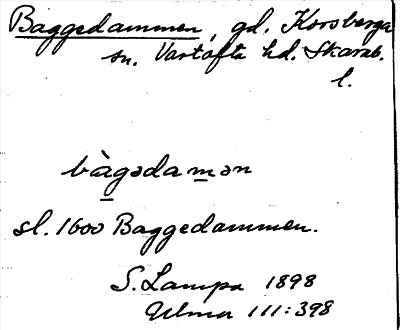 Baggedammen, gd. Korsberga
sn. Vartofta hd. Skarab.
l.
bàgədamən
sl. 1600 Baggedammen.
S. Lampa 1898
Ulma 111:398